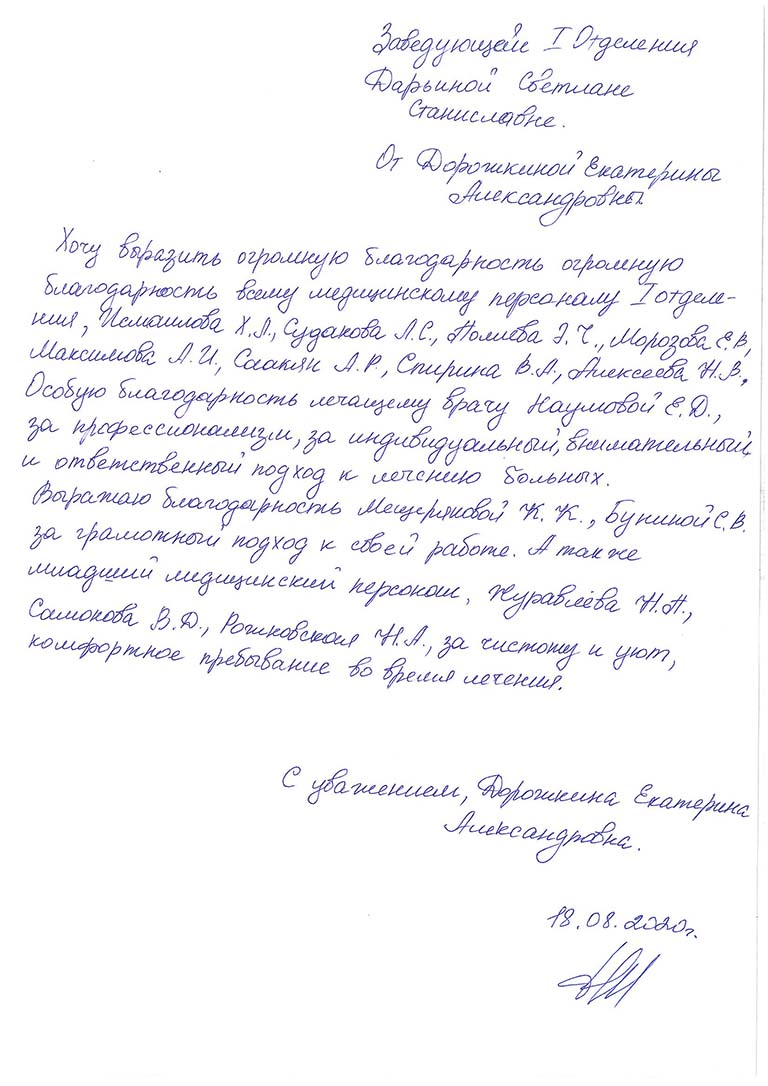 Заведующей I Отделения
Дарьиной Светлане
Станиславне.
От Дорошкиной Екатерины
Александровны
Хочу выразить огромную благодарность огромную
благодарность всему медицинскому персоналу I отделе-
ния, Исмаилова Х.Л., Судакова Л.С., Полиева Э.Ч., Морозова Е.В,
Максимова А.И., Саакян А.Р., Спирина В.А., Алексеева Н.В.,
Особую благодарность лечащему врачу Наумовой Е.Д.,
за профессионализм, за индивидуальный, внимательный,
и ответственный подход к лечению больных.
Выражаю благодарность Мещеряковой К.К., Буниной С.В.
за грамотный подход к своей работе. А также
младший медицинский персонал, Журавлёва Н.П.,
Самокова В.Д., Рожновская Н.А., за чистоту и уют,
комфортное пребывание во время лечения.
С уважением, Дорошкина Екатерина
Александровна.
18.08.2020г.